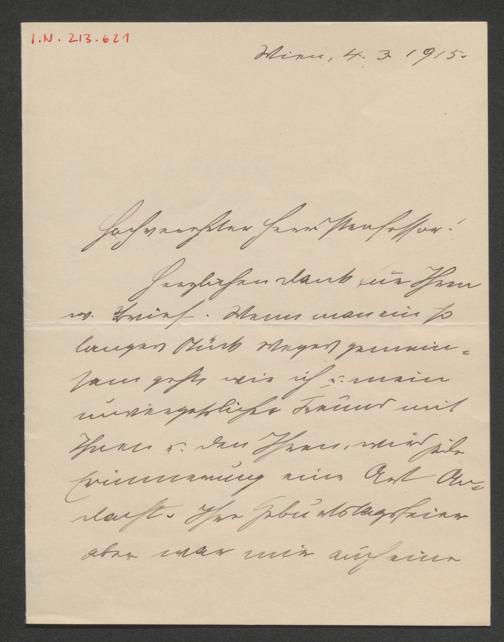 I.N. 213.621
Wien, 4. 3. 1915.
Hochverehrter Herr Professor!
Herzlichen Dank für Ihren
w. Brief. Wenn man ein so
langes Stück Weges gemein-
sam geht, wie ich u. mein
unvergeßlicher Freund mit
Ihnen u. den Ihren, wird jede
Erinnerung eine Art An-
dacht. Ihre Geburtstagsfeier
aber war mir auch eine